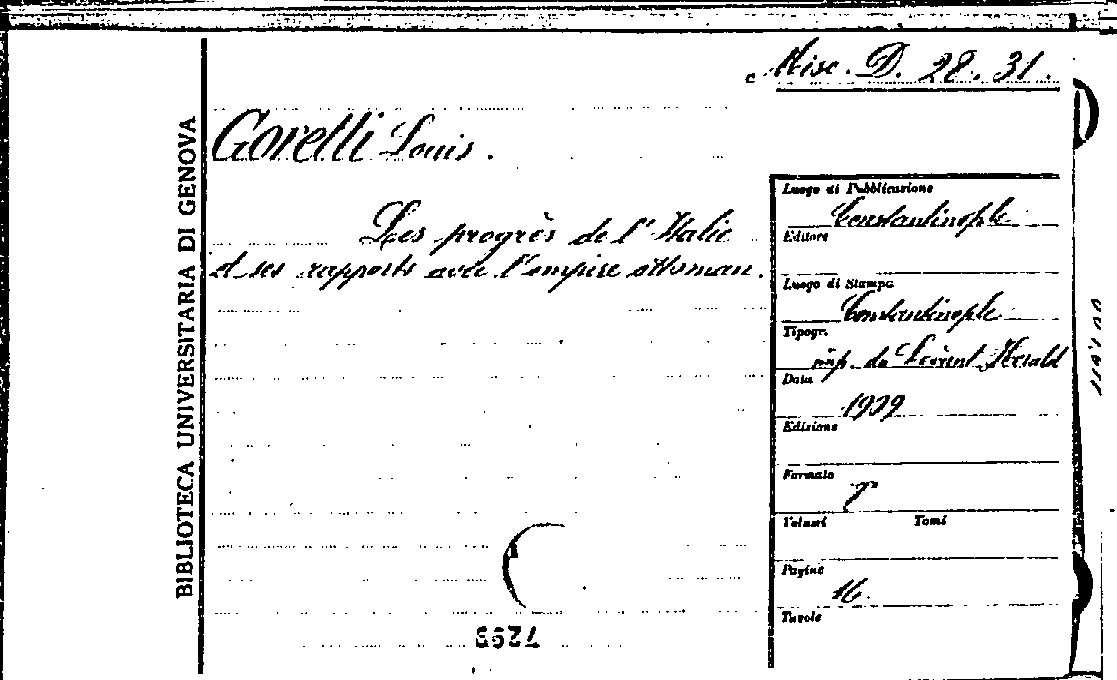 Misc. D. 28. 31.
Gorelli Louis.
Les progrès de l'Italie
et ses rapports avec l'empire ottoman.
BIBLIOTECA UNIVERSITARIA DI GENOVA
Luogo di Pubblicazione
Constantinople
Editore
Luogo di Stampa
Constantinople
Tipogr.
imp. du Levent Herald
Data
1909
Edizione
Formato
8°
Volumi Tomi
Pagine
16.
Tavole
7293